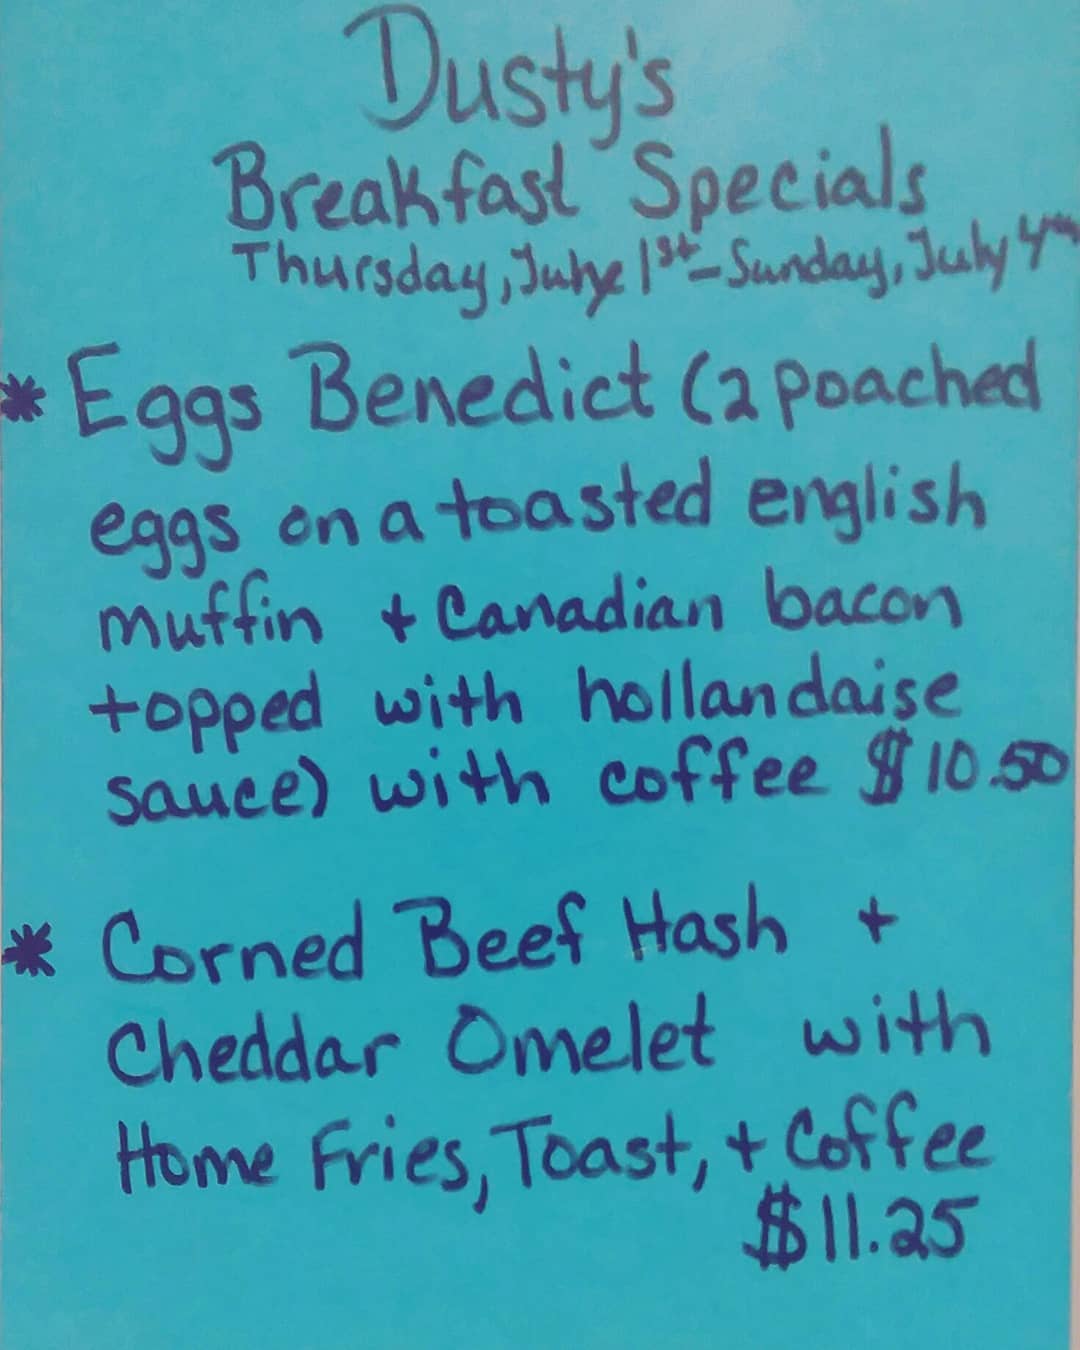 Dusty's
Breakfast Specials
Thursday, July 1st - Sunday, July 4th
* Eggs Benedict (2 poached
eggs on a toasted english
muffin + Canadian bacon
topped with hollandaise
sauce) with coffee $10.50
* Corned Beef Hash +
Cheddar Omelet with
Home Fries, Toast, + Coffee
$11.25